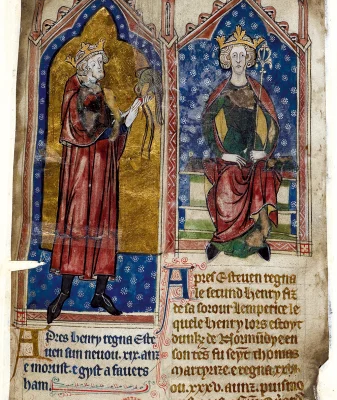 Apres henry regna Este
uen sun neuou. xix. anz
e morust. e gyst a fauers
ham.
Apres Esteuen regna
le secund henry fiz
de sa sorour lemperice le
quele henry lors estoyt
de Normūdy e en
son tēs fu seyt thomas
martyrize e regna
ou. xxxv. aunz.